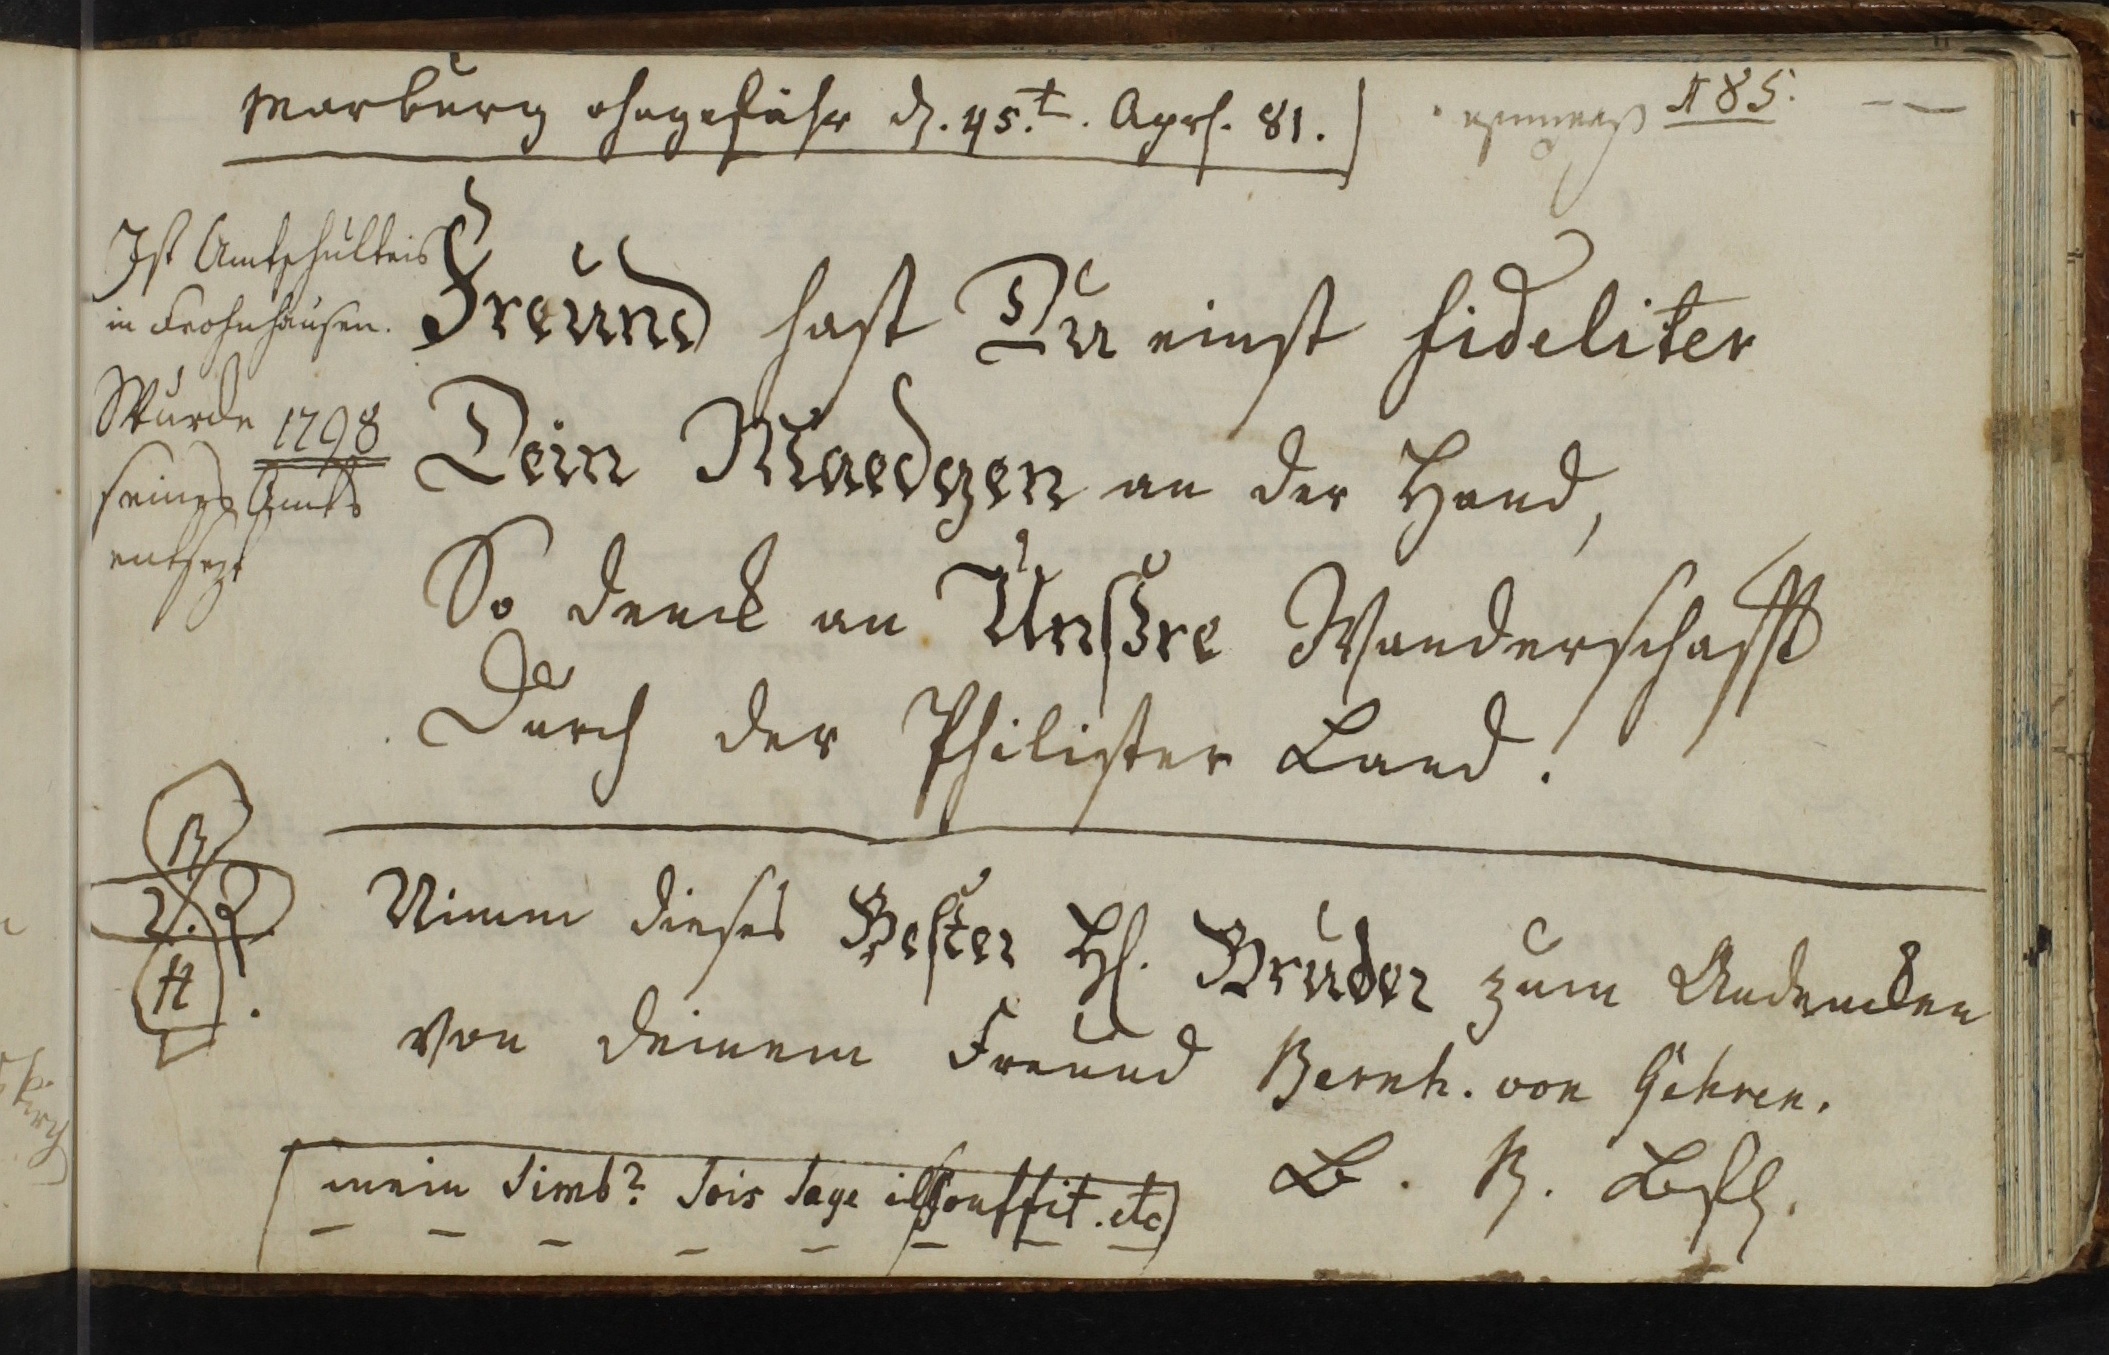 Marburg ohngefähr d. 45.t. Aprl. 81.
185.
Ist Amtschulteis
in Frohnhausen.
Wurde 1798
seines Amts
entsezt
Freund hast Du einst fideliter
Dein Maedgen an der Hand,
So denck an Unsre Wanderschafft
Durch der Philister Land.
Nimm dieses Bester Hl. Bruder zum Andencken
von deinem Freund Bernh. von Gehren.
mein Simb? Sois Sage il souffit. etc